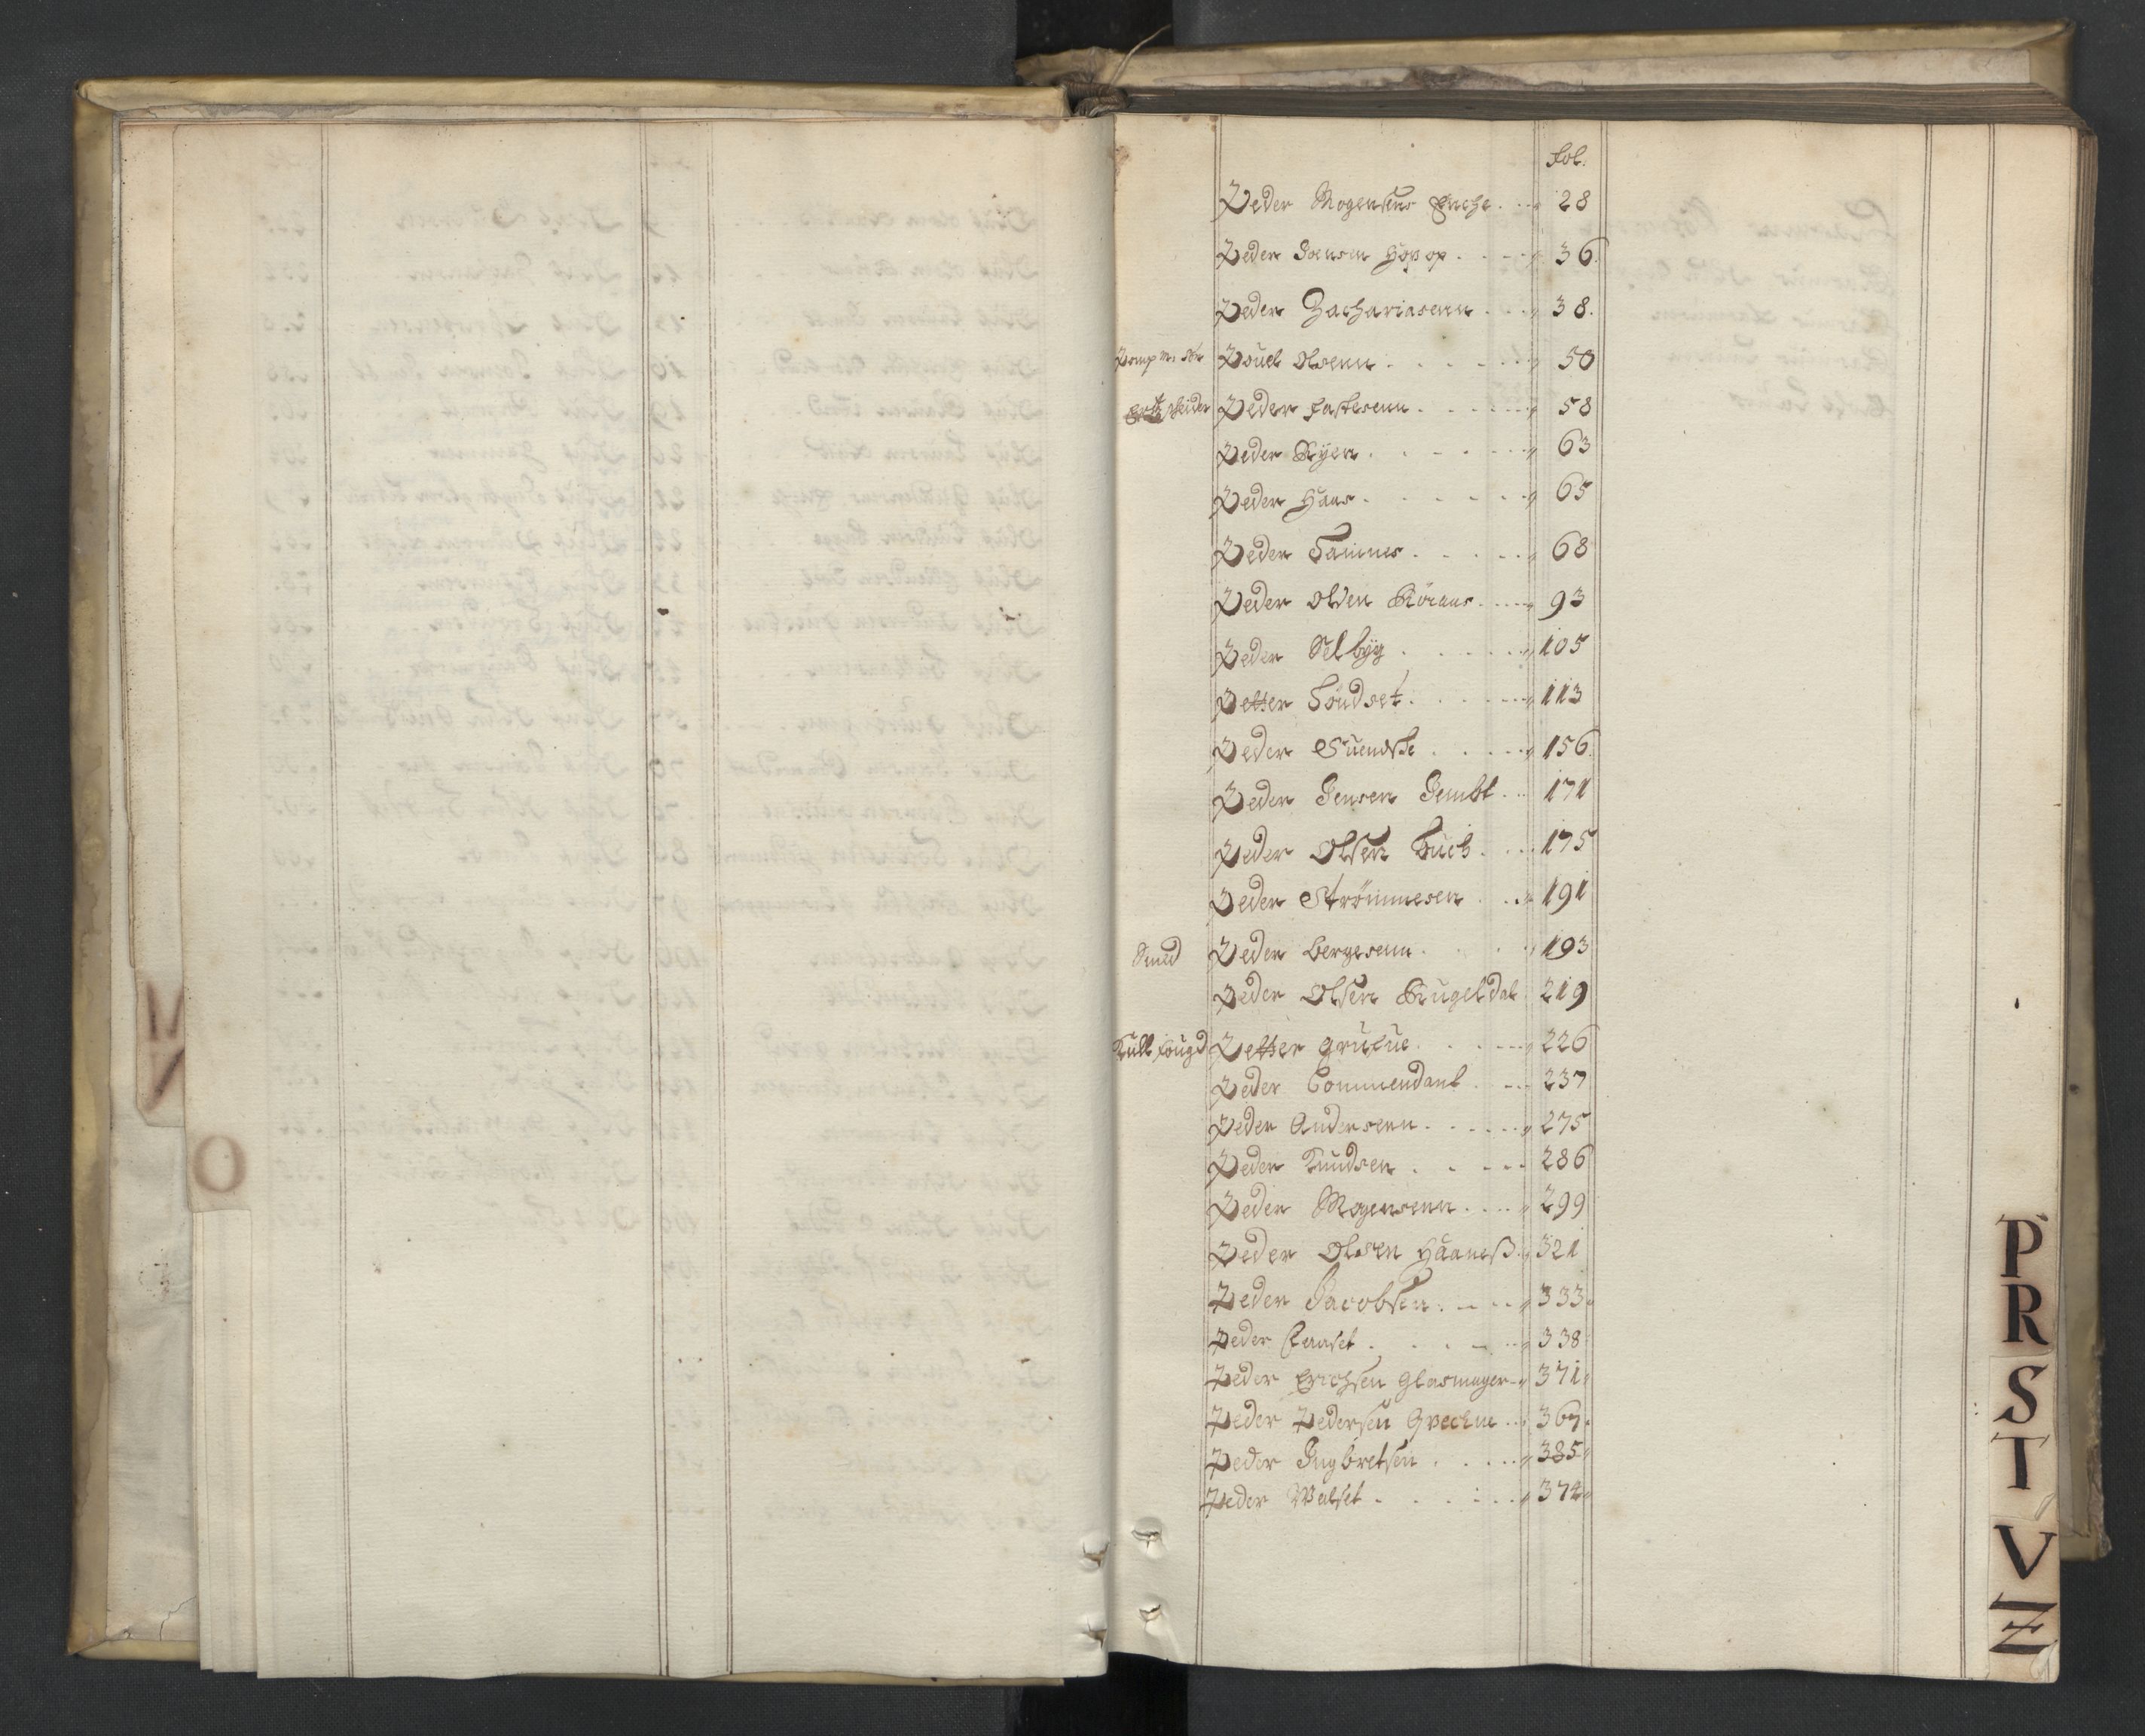 Fol.
Peder Mogensens Enche 28
Peder Joensen Hopop 36.
Peder Zachariasenn 38.
Pouel Olsenn 50
Peder Fastesenn 58
Peder Ryen 63
Peder Haar 65
Peder Tamnes 68
Peder Olsen Röraas 93
Peder Selbyg 105
Petter Töndset 113
Peder Suendske 156.
Peder Jensen Jembt 171
Peder Olsen Buch 175
Peder Strömmesen 191
Smed Peder Bergesenn 193
Peder Olsen Kugeldal 219
Kull fougd Petter Grufue 226
Peder Commendant 237
Peder Andersenn 275
Peder Knudsen 286
Peder Mogensenn 299
Peder Olsen Haaneß 321
Peder Jacobsen 333
Peder Faaset 338
Peder Erichsen Glasmager 371
Peder Pedersen Greckne 367.
Peder Ingbretsen 385
Peder Walset 374
N
O
P
R
S
T
V
Z